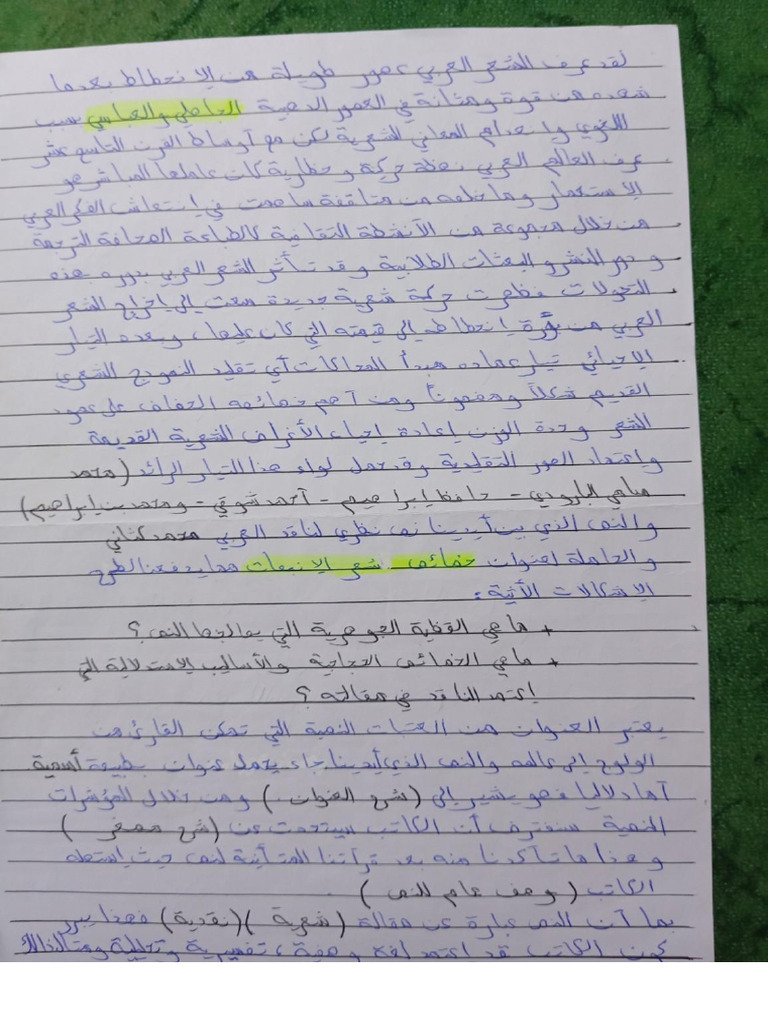 لقد عرف الشعر العربي عصور طويلة من الانحطاط بعدما
شهده من قوة ومثانة في العصور الدهبية الجاهلي والعباسي بسبب
اللغوي وانعدام المعاني الشعرية لكن مع أوساط القرن التاسع عشر
عرف العالم العربي نهظة حركية وحظارية كان عاملها المباشر هو
الاستعمار وما خلفه من متاقفة ساهمت في إنتعاش الفكر العربي
من خلال مجموعة من الأنشطة الثقافية كالطباعة الصحافة الترجمة
ودور النشر والبعثات الطلابية وقد تأثر الشعر العربي بدوره بهذه
التحولات فظهرت حركة شعرية جديدة سعت إلى إخراج الشعر
العربي من بؤرة إنحطاطه إلى قيمته التي كان عليها، وبعده التيار
الإحيائي تيار عماده مبدأ المحاكات أي تقليد النمودج الشعري
القديم شكلاً ومضموناً ومن أهم خصائصه الحفاف على عمود
الشعر وحدة الوزن إعادة إحياء الأغراف الشعرية القديمة
واعتماد الصور التقليدية وقد حمل لواء هذا التيار الرائد (محمد
سامي البارودي - حافظ إبراهيم - أحمد شوقي - ومحمد بن إبراهيم)
والنص الذي بين أيدينا نص نظري لناقد العربي محمد كتاني
والحاملة لعنوان خصائص شعر الانبعات مما يدفعنا لطرح
الاشكالات الأتية:
+ ما هي القظية الجوهرية التي يعالجها النص؟
+ ماهي الخصائص الحجاجية والأساليب الاستدلالية التي
إعتمد الناقد في مقالته؟
يعتبر العنوان من العتبات النصية التي تمكن القارئ من
الولوج إلى عالمه والنص الذي أيدينا جاء يحمل عنوان بطبيعة أسمية
أما دلاليا فهو يشير إلى (شرح العنوان.) ومن خلال المؤشرات
النصية سنفترف أن الكاتب سيتحدت عن (شرح مصغر)
وهذا ما تأكدنا منه بعد قرآتنا المتأنية لنص حيت إستهله
الكاتب (وصف عام للنص)
بما أن النص عبارة عن مقالة (شعرية)(نقدية) فهذا يبرر
كون الكاتب قد اعتمد لغة وصفية، تفسيرية وتعليلية ومتال ذالك